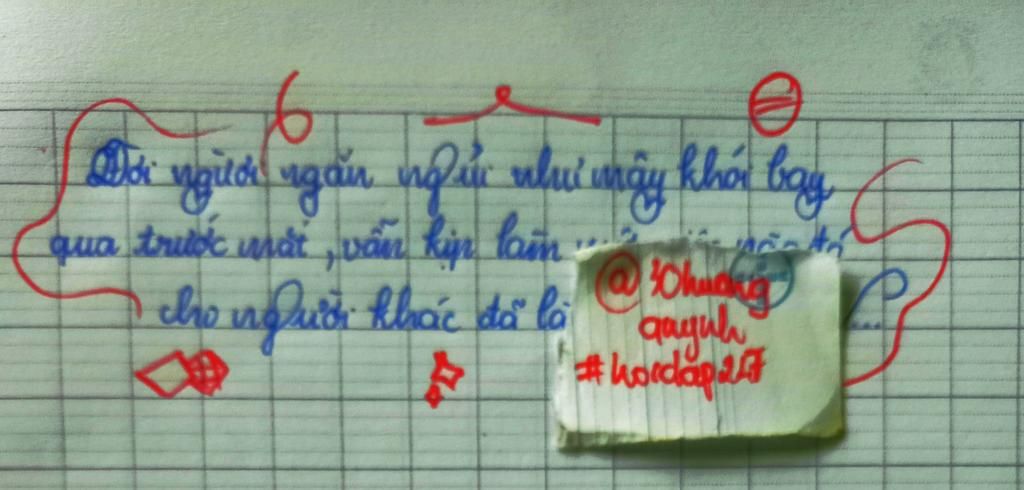 Đời người ngắn ngủi như mây khói bay
qua trước mắt, vẫn kịp làm
cho người khác đã là
...
@ 30huong
quynh
#hoidap247